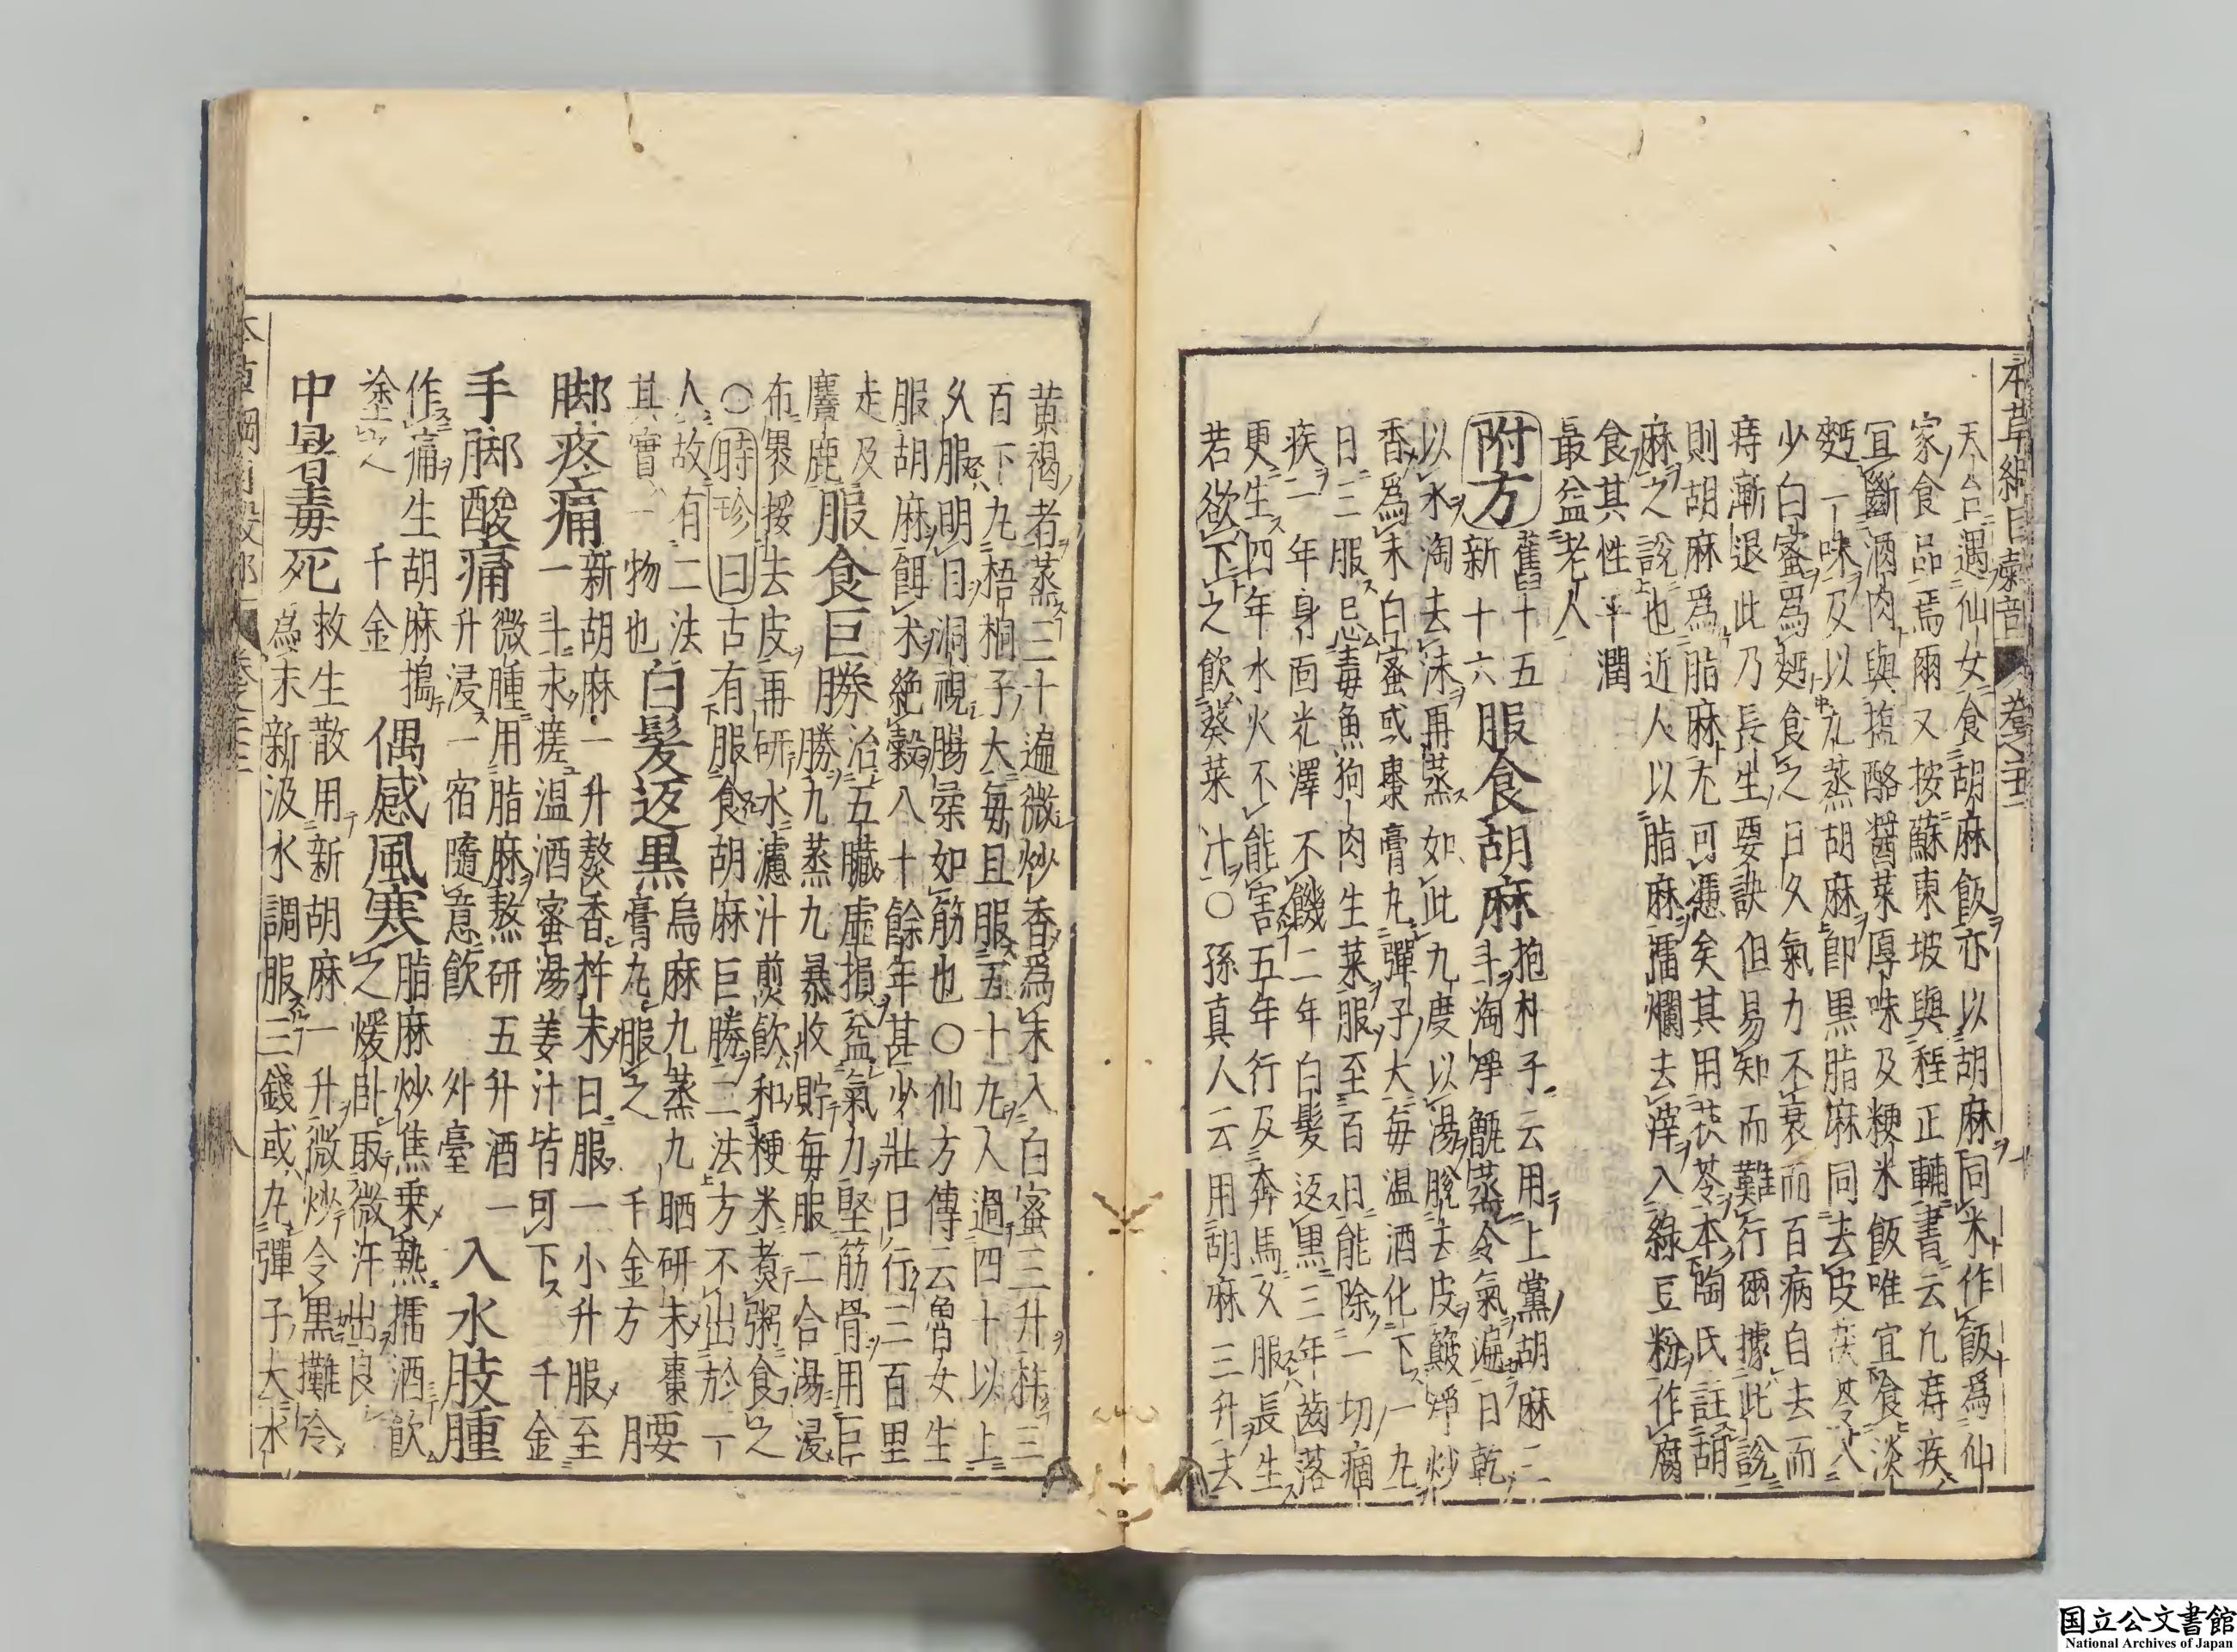 天台遇仙女食胡麻飯亦以胡麻同米作飯爲仙
家食品焉爾又按蘇東坡與程正輔書云凢痔疾
宜斷酒肉與塩酪醬菜厚味及粳米飯唯宜食淡
麪一味及以九蒸胡麻即黒脂麻同去皮茯苓入
少白蜜爲麪食之日久氣力不衰而百病自去而
痔漸退此乃長生要訣但易知而難行爾據此說
則胡麻爲脂麻尤可憑矣其用茯苓本陶氏註胡
麻之說也近人以脂麻擂爛去滓入綠豆粉作腐
食其性平潤
最益老人
附方 舊十五新十六 服食胡麻 抱朴子云用上黨胡麻三斗淘淨甑蒸令氣遍日乾
以水淘去沫再蒸如此九度以湯脫去皮簸淨炒
香爲末白蜜或棗膏丸彈子大每温酒化下一丸
日三服忌毒魚狗肉生菜服至百日能除一切痼
疾一年身面光澤不饑二年白髮返黒三年齒落
更生四年水火不能害五年行及奔馬久服長生
若欲下之飲葵菜汁〇孫真人云用胡麻三升去
黄褐者蒸三十遍微炒香爲末入白蜜三升杵三
百下丸梧桐子大每旦服五十丸人過四十以上
久服明目洞視腸柔如筋也〇仙方傳云魯女生
服胡麻餌朮絶穀八十餘年甚少壯日行三百里
走及麞鹿 服食巨勝 治五臟虛損益氣力堅筋骨用巨勝九蒸九暴收貯每服二合湯浸
布褁挼去皮再研水濾汁煎飲和粳米煮粥食之
〇時珍曰古有服食胡麻巨勝二法方不出於一
人故有二法其實一物也 白髮返黒 烏麻九蒸九晒研末棗膏丸服之 千金方 腰
脚疼痛 新胡麻一升熬香杵末日服一小升服至一斗永瘥温酒蜜湯姜汁皆可下 千金
手脚酸痛 微腫用脂麻熬研五升酒一升浸一宿隨意飲 外臺 入水肢腫
作痛生胡麻搗塗之 千金 偶感風寒 脂麻炒焦乗熱擂酒飲之煖卧取微汗出良
中暑毒死 救生散用新胡麻一升微炒令黒攤冷爲末新汲水調服三錢或丸彈子大水
国立公文書館
National Archives of Japan